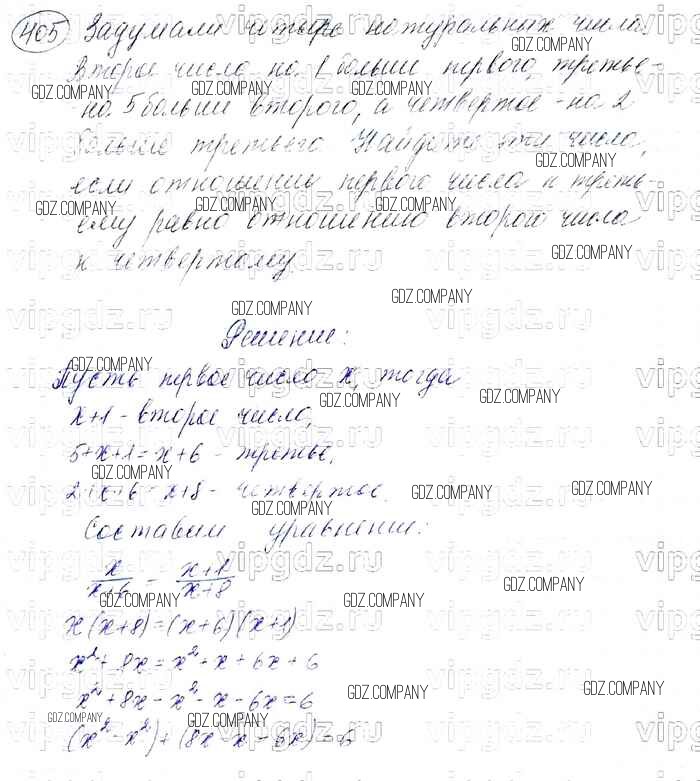 405 Задумали четыре натуральных числа.
Второе число на 1 больше первого, третье -
на 5 больше второго, а четвертое - на 2
больше третьего. Найдите эти числа,
если отношение первого числа к треть-
ему равно отношению второго числа
к четвертому.
Решение:
Пусть первое число x, тогда
x+1 - второе число,
5+x+1=x+6 - третье,
2+x+6=x+8 - четвертое.
Составим уравнение:
x/(x+6) = (x+1)/(x+8)
x(x+8)=(x+6)(x+1)
x²+8x=x²+x+6x+6
x²+8x-x²-x-6x=6
(x²-x²)+(8x-x-6x)=6
GDZ.COMPANY
vipgdz.ru